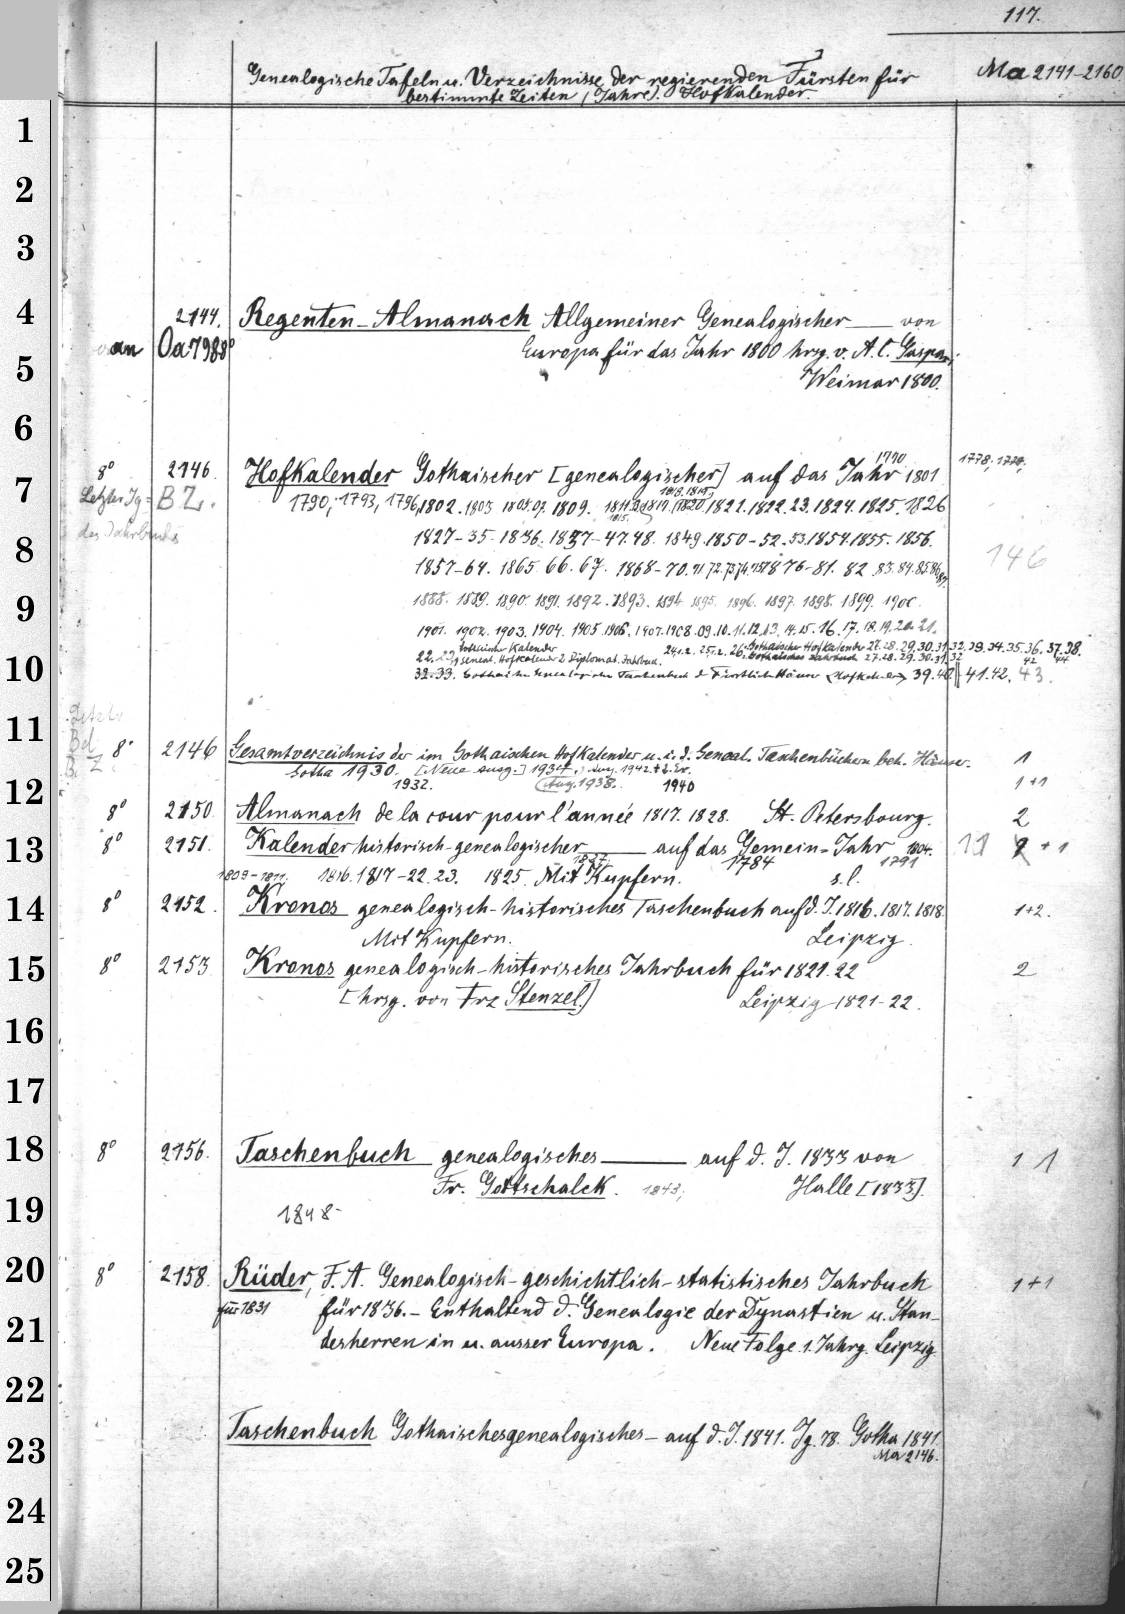 117.
Genealogische Tafeln u. Verzeichnisse der regierenden Fürsten für
bestimmte Zeiten (Jahre). Hofkalender.
Ma 2141-2160
1
2
3
4
2144. Regenten-Almanach Allgemeiner Genealogischer — von
an Oa 798 8° Europa für das Jahr 1800 hrsg. v. A. C. Gaspari
5
Weimar 1800.
6
8° 2146. Hofkalender Gothaischer [genealogischer] auf das Jahr 1790 1801 1778, 1779,
7
Letzter Jg = BZ. 1790, 1793, 1796, 1802. 1803 1805. 07. 1809. 1819. 1820. 1821. 1822. 23. 1824. 1825. 1826
des Jahrbuchs
8
1827-35. 1836. 1837-47. 48. 1849. 1850-52. 53. 1854. 1855. 1856.
146
1857-64. 1865. 66. 67. 1868-70. 71 72. 73 74. 1876-81. 82. 83. 84. 85 86 87.
9
1888. 1889. 1890. 1891. 1892. 1893. 1894 1895. 1896. 1897. 1898. 1899. 1900.
1901. 1902. 1903. 1904. 1905 1906. 1907. 1908. 09. 10. 11. 12. 13. 14. 15. 16. 17. 18. 19. 20. 21.
10
Gothaischer Kalender 26. Gothaischer Hofkalender 27. 28. 29. 30. 31. 32. 33. 34. 35. 36. 37. 38.
22. 23 geneal. Hofkalender u. Diplomat. Jahrbuch Gothaisches Jahrbuch 27. 28. 29. 30. 31. 32 42 44
32. 33. Gothaisches Genealogisches Taschenbuch d. Fürstlichen Häuser (Hofkalender) 39. 40 41. 42. 43.
11
Letzt.
Bd.
B. Z.
8° 2146 Gesamtverzeichnis der im Gothaischen Hofkalender u. i. d. Geneal. Taschenbüchern beh. Häuser. 1
Gotha 1930. [Neue Ausg.] 1934. Ausg. 1942 1+1
12
1932. Ausg. 1938. 1940
8° 2150 Almanach de la cour pour l'année 1817. 1828. St. Petersbourg. 2
13
8° 2151. Kalender historisch-genealogischer — auf das Gemein-Jahr 1804. 11 + 1
1827. 1784 1791
1809-1811. 1816. 1817-22. 23. 1825. Mit Kupfern. s. l.
14
8° 2152. Kronos genealogisch-historisches Taschenbuch auf d. J. 1816. 1817. 1818. 1+2.
Mit Kupfern. Leipzig.
15
8° 2153 Kronos genealogisch-historisches Jahrbuch für 1821. 22 2
[hrsg. von Frz Stenzel.] Leipzig 1821-22.
16
17
18
8° 2156. Taschenbuch genealogisches — auf d. J. 1833 von 1 1
Fr. Gottschalck. 1843, Halle [1833].
19
1848-
20
8° 2158. Rüder, F. A. Genealogisch-geschichtlich-statistisches Jahrbuch 1+1
für 1831 für 1836. - Enthaltend d. Genealogie der Dynastien u. Stan-
21
desherren in u. ausser Europa. Neue Folge. 1. Jahrg. Leipzig.
22
23
Taschenbuch Gothaisches genealogisches - auf d. J. 1841. Jg. 78. Gotha 1841.
Ma 2146.
24
25